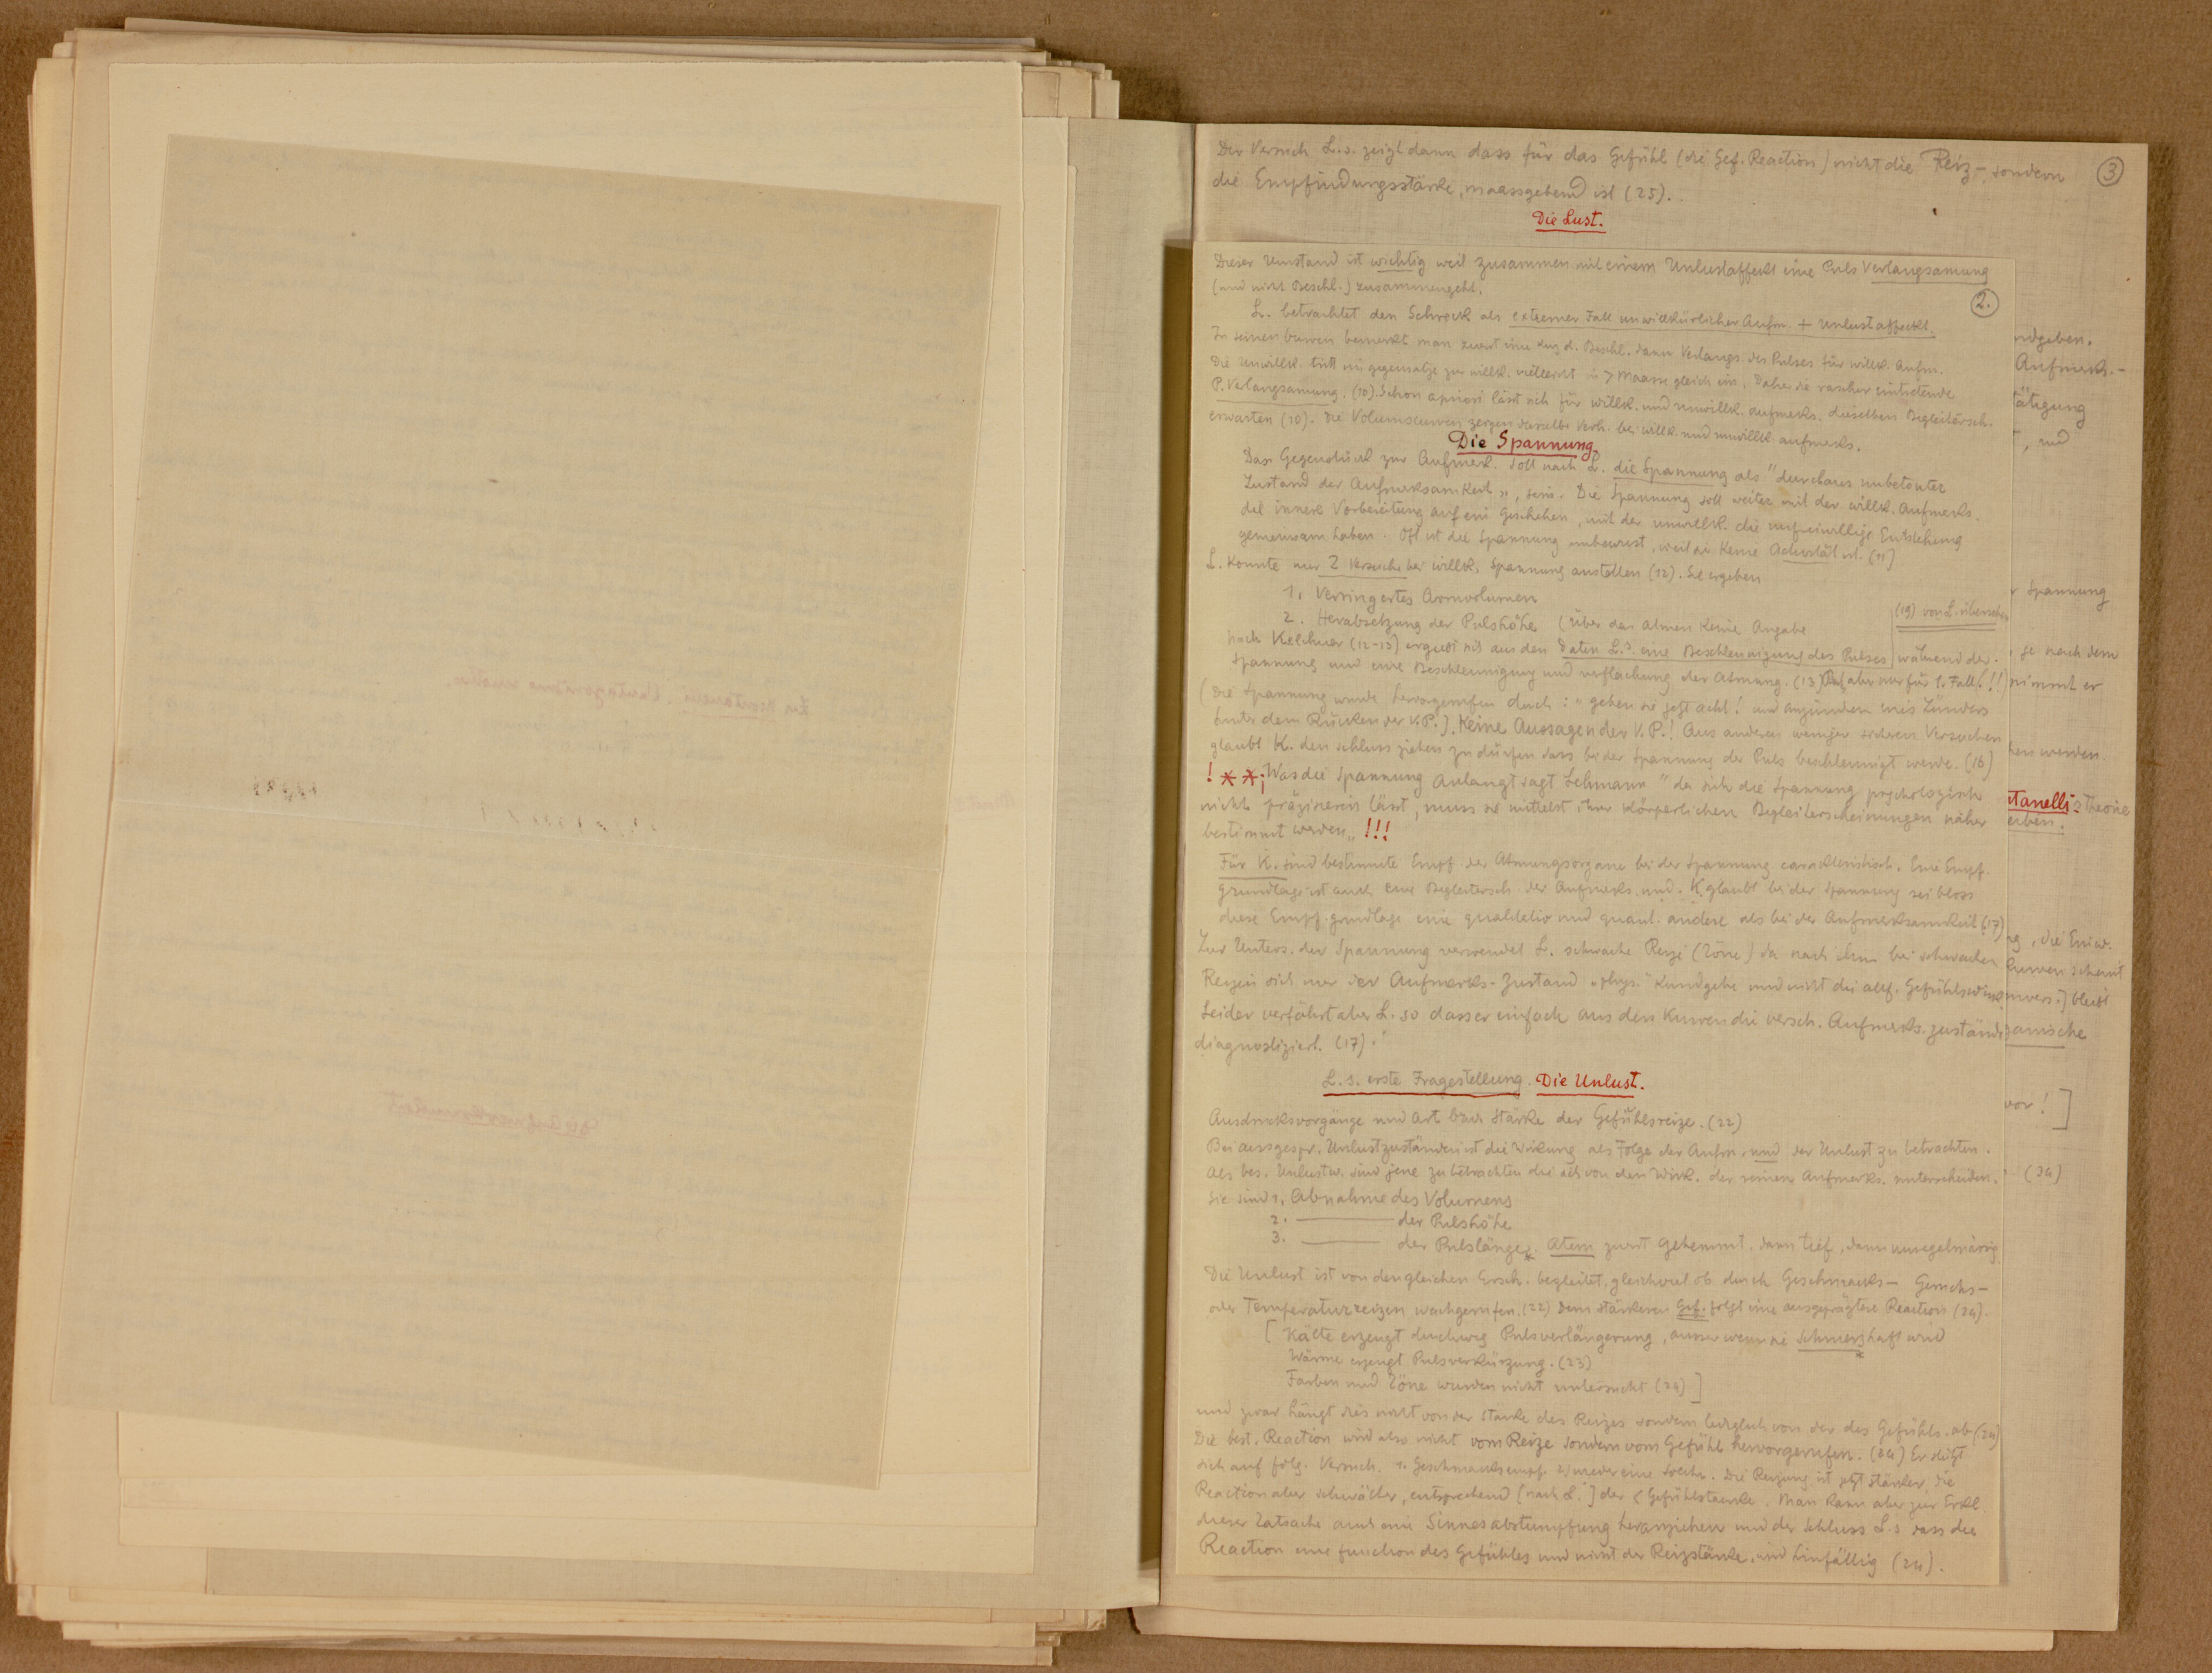 Der Versuch L.s. zeigt dann dass für das Gefühl (die Gef. Reaction) nicht die Reiz-, sondern
③
die Empfindungsstärke, maassgebend ist (25).
Die Lust.
Dieser Umstand ist wichtig weil zusammen mit einem Unlustaffekt eine Puls Verlangsamung
(und nicht Beschl.) zusammengeht.
2.
L. betrachtet den Schreck als extremer Fall unwillkürlicher Aufm. + Unlustaffeckt.
In seinen Curven bemerkt man zuerst eine d. Beschl. dann Verlangs. des Pulses für willk. Aufm.
Die unwillk. tritt im gegensatze zur willk. vielleicht in > Maasse gleich ein. Daher die rascher eintretende
P. Verlangsamung. (10). Schon apriori lässt sich für willk. und unwillk. aufmerks. dieselben Begleitersch.
erwarten (10). Die Volumscurven zeigen dasselbe Verh. bei willk. und unwillk. aufmerks.
Die Spannung.
Das Gegenstück zur Aufmerk. soll nach L. die Spannung als "dunkbares unbetonter
Zustand der Aufmerksamkeit", sein. Die Spannung soll weiter mit der willk. Aufmerks.
die innere Vorbereitung auf ein Geschehen, mit der unwillk. die unfreiwillige Entstehung
gemeinsam haben. Oft ist die Spannung unbewust, weil sie keine Activität ist. (11)
L. konnte nur 2 Versuche bei willk. Spannung anstellen (12). Sie ergeben
1. Verringertes Armvolumen
2. Herabsetzung der Pulshöhe (über das atmen keine Angabe
(19) von L. übersehen
nach Kelchner (12-13) ergiebt sich aus den Daten L.s. eine Beschleunigung des Pulses während der
Spannung und eine Beschleunigung und verflachung der Atmung. (13) aber nur für 1. Fall. !!
(Die Spannung wurde hervorgerufen durch: "gehen sie jetzt acht! und anzünden eines Zünders
hinter dem Rücken der V.P.). Keine Aussagen der V.P.! Aus anderen weniger sicheren Versuchen
glaubt K. den schluss ziehen zu dürfen dass bei der Spannung der Puls beschleunigt werde. (16)
! * * ¡ Was die Spannung anlangt sagt Lehmann "da sich die Spannung psychologisch
nicht präzisieren lässt, muss sie mittelst ihrer körperlichen Begleiterscheinungen näher
bestimmt werden" !!!
Für K. sind bestimmte Empf. der Atmungsorgane bei der Spannung carakteristisch. Eine Empf.
grundlage ist auch eine Begleitersch. der Aufmerks. und K. glaubt bei der Spannung sei bloss
diese Empf. grundlage eine qualitativ und quant. andere als bei der Aufmerksamkeit (17)
Zur Unters. der Spannung verwendet L. schwache Reize (Töne) da nach ihm bei schwachen
Reizen sich nur der Aufmerks-Zustand "phys." kundgebe und nicht die allf. Gefühlswirk
Leider verfährt aber L. so dass er einfach aus den Kurven die versch. Aufmerks. zustände
diagnostiziert. (17).
L.s. erste Fragestellung. Die Unlust.
Ausdrucksvorgänge und Art bzw. Stärke der Gefühlsreize. (22)
Bei ausgespr. Unlustzuständen ist die Wirkung als Folge der Aufm. und der Unlust zu betrachten.
Als bes. Unlustw. sind jene zu betrachten die sich von den Wirk. der reinen Aufmerks. unterscheiden.
Sie sind 1. Abnahme des Volumens
2. ——— der Pulshöhe
3. ——— der Pulslänge*. Atem zuerst gehemmt, dann tief, dann unregelmässig
Die Unlust ist von den gleichen Ersch. begleitet, gleichviel ob durch Geschmacks- Geruchs-
oder Temperaturreizen wachgerufen. (22) Dem stärkeren Gef. folgt eine ausgeprägtere Reaction (24).
[Kälte erzeugt durchweg Pulsverlängerung, ausser wenn sie schmerzhaft wird
*
Wärme erzeugt Pulsverkürzung. (23)
Farben und Töne wurden nicht untersucht (24)]
und zwar hängt dies nicht von der Stärke des Reizes sondern lediglich von der des Gefühls. ab (24)
Die best. Reaction wird also nicht vom Reize sondern vom Gefühl hervorgerufen. (24) Er stützt
sich auf folg. Versuch. 1. Geschmacksempf. 2) wieder eine solche. Die Reizung ist jetzt stärker, die
Reaction aber schwächer, entsprechend [nach L.] der < Gefühlstaerke. Man kann aber zur Erkl.
dieser Tatsache auch eine Sinnesabstumpfung heranziehen und der Schluss L.s dass die
Reaction eine function des Gefühles und nicht der Reizstärke, wird hinfällig (24).
ndgeben.
Aufmerks.-
tätigung
, und
Spannung
je nach dem
nimmt er
hen werden.
tanelli-Theorie
erben.
ng, die Einw.
Curven scheint
nvers.] bleibt
anische
vor!]
(34)